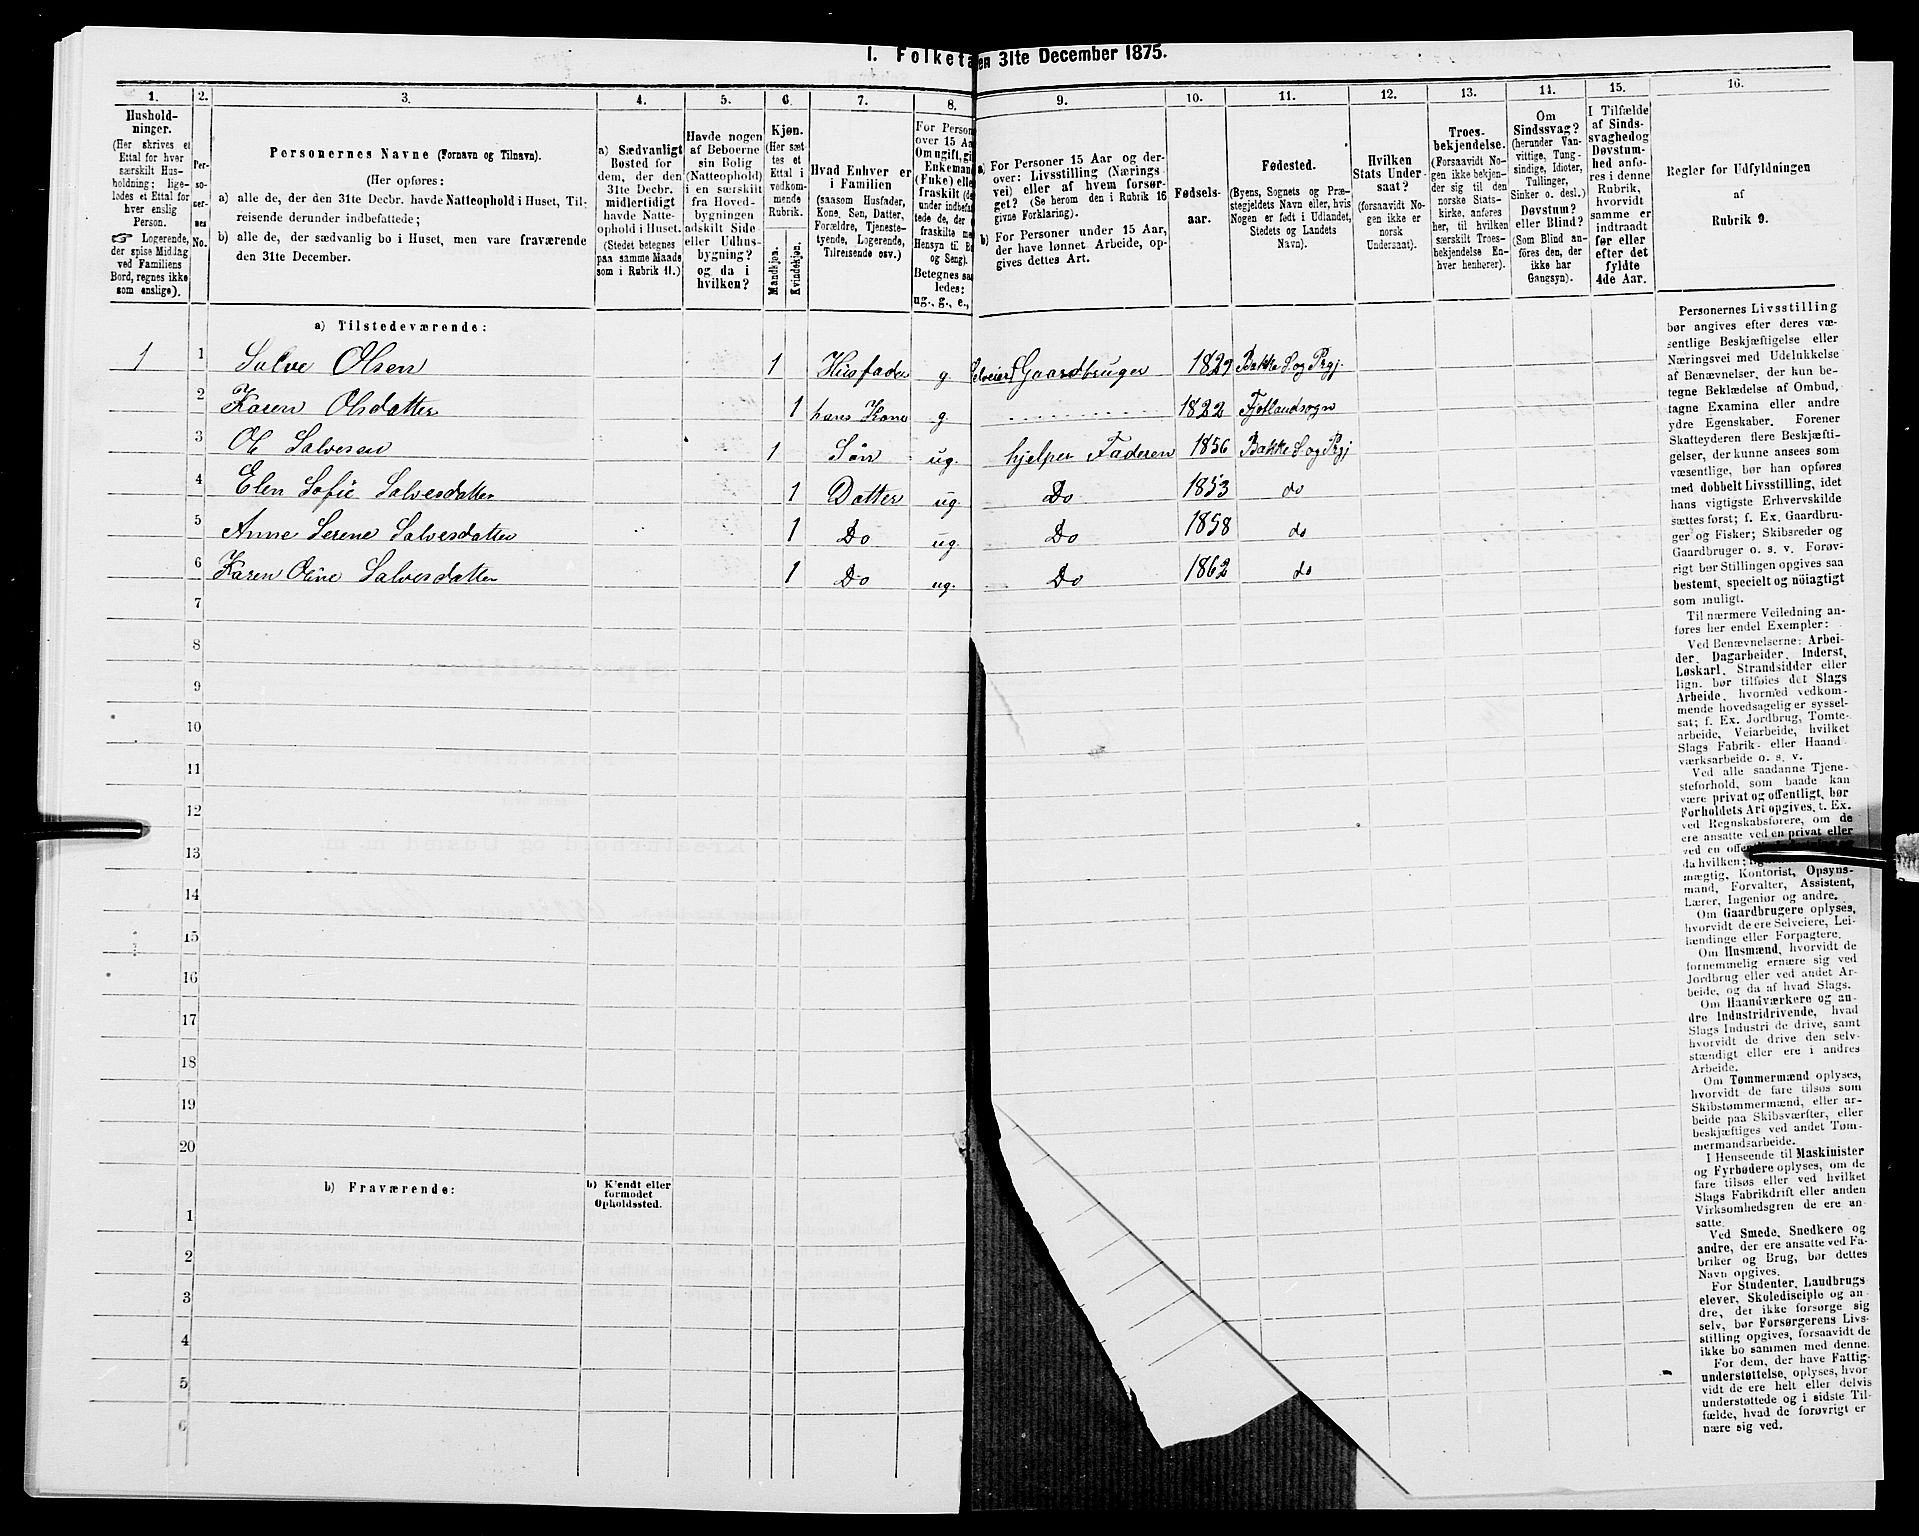 I. Folketa en 31te December 1875.
1. 2. 3. 4. 5. 6. 7. 8. 9. 10. 11. 12. 13. 14. 15. 16.
Hushold-
ninger.
(Her skrives et
Ettal for hver
særskilt Hus-
holdning; lige-
ledes et Ettal for
hver enslig
Person.
☞ Logerende,
der spise Middag
ved Familiens
Bord, regnes ikke
som enslige).
Per-
so-
ner-
nes
No.
Personernes Navne (Fornavn og Tilnavn).
(Her opføres:
a) alle de, der den 31te Decbr. havde Natteophold i Huset, Til-
reisende derunder indbefattede;
b) alle de, der sædvanlig bo i Huset, men vare fraværende
den 31te December.
a) Sædvanligt
Bosted for
dem, der den
31te Decbr.
midlertidigt
havde Natte-
ophold i Huset.
(Stedet betegnes
paa samme Maade
som i Rubrik 11.)
Havde nogen
af Beboerne
sin Bolig
(Natteophold)
i en særskilt
fra Hoved-
bygningen
adskilt Side-
eller Udhus-
bygning?
og da i
hvilken?
Kjøn.
(Her sæt-
tes et
Ettal i
vedkom-
mende
Rubrik.
Mandkjøn.
Kvindekjøn.
Hvad Enhver er
i Familien
(saasom Husfader,
Kone, Søn, Datter,
Forældre, Tjeneste-
tyende, Logerende,
Tilreisende osv.)
For Person
over 15 Aa
Om ugift, gi
Enkeman
(Enke) elle
fraskilt (de
under indbefat
tede de, der e
fraskilte me
Hensyn til Bo
og Seng).
Betegnes saa
ledes:
ug., g., e.,
a) For Personer 15 Aar og der-
over: Livsstilling (Nærings
vei) eller af hvem forsør-
get? (Se herom den i Rubrik 16
givne Forklaring).
b) For Personer under 15 Aar,
der have lønnet Arbeide, op-
gives dettes Art.
Fødsels-
aar.
Fødested.
(Byens, Sognets og Præ-
stegjeldets Navn eller, hvis
Nogen er født i Udlandet,
Stedets og Landets
Navn).
Hvilken
Stats Under-
saat?
(forsaavidt No-
gen ikke er
norsk
Undersaat).
Troes-
bekjendelse.
(Forsaavidt No-
gen ikke bekjen-
der sig til den
norske Stats-
kirke, anføres
her, til hvilken
særskilt Troes-
bekjendelse En-
hver henhører).
Om
Sindssvag?
(herunder Van-
vittige, Tung-
sindige, Idioter,
Tullinger,
Sinker o. desl.)
Døvstum?
eller Blind?
(Som Blind an-
føres den, der
ikke har
Gangsyn).
I Tilfælde
af Sinds-
svaghed og
Døvstum-
hed anfø-
res i denne
Rubrik,
hvorvidt
samme er
indtraadt
før eller
efter det
fyldte
4de Aar.
Regler for Udfyldningen
af
Rubrik 9.
a) Tilstedeværende:
1 1 Salve Olsen 1 Husfader g. Selveier Gaardbruger 1829 Bakke S og Prgj.
2 Karen Olsdatter 1 hans Kone g. 1822 Fjotlandsogn
3 Ole Salvesen 1 Søn ug. hjelper Faderen 1856 Bakke S og Prgj
4 Elen Sofie Salvesdatter 1 Datter ug Do 1853 do
5 Anne Serene Salvesdatter 1 Do ug. Do 1858 do
6 Karen Oline Salvesdatter 1 Do ug. Do 1862 do
7
8
9
10
11
12
13
14
15
16
17
18
19
20
b) Fraværende:
b) Kjendt eller
formodet
Opholdssted.
1
2
3
4
5
6
Personernes Livsstilling
bør angives efter deres væ-
sentlige Beskjæftigelse eller
Næringsvei med Udelukkelse
af Benævnelser, der kun be-
tegne Beklædelse af Ombud,
tagne Examina eller andre
ydre Egenskaber. Forener
Skatteyderen flere Beskjæfti-
gelser, der kunne ansees som
væsentlige, bør han opføres
med dobbelt Livsstilling, idet
hans vigtigste Erhvervskilde
sættes først; f. Ex. Gaardbru-
ger og Fisker; Skibsreder og
Gaardbruger o. s. v. Forøv-
rigt bør Stillingen opgives saa
bestemt, specielt og nöiagtigt
som muligt.
Til nærmere Veiledning an-
føres her endel Exempler:
Ved Benævnelserne: Arbei-
der, Dagarbeider, Inderst,
Løskarl, Strandsidder eller
lign. bør tilføies det Slags
Arbeide, hvormed vedkom-
mende hovedsagelig er syssel-
sat; f. Ex. Jordbrug, Tomte-
arbeide, Veiarbeide, hvilket
Slags Fabrik- eller Haand
værksarbeide o. s. v.
Ved alle saadanne Tjene-
steforhold, som baade kan
være privat og offentligt, bør
Forholdets Art opgives, t. Ex.
ved Regnskabsførere, om de
ere ansatte ved en privat eller
ved en
da hvilken;
mægtig, Kontorist, Opsyns-
mand, Forvalter, Assistent,
Lærer, Ingeniør og andre.
Om Gaardbrugere oplyses,
hvorvidt de ere Selveiere, Lei-
lændinge eller Forpagtere.
Om Husmænd, hvorvidt de
fornemmelig ernære sig ved
Jordbrug eller ved andet Ar-
beide, og da af hvad Slags.
Om Haandværkere og an-
dre Industridrivende, hvad
Slags Industri de drive, samt
hvorvidt de drive den selv-
stændigt eller ere i andres
Arbeide.
Om Tømmermænd oplyses,
hvorvidt de fare tilsøs som
Skibstømmermænd, eller ar-
beide paa Skibsværfter, eller
beskjæftiges ved andet Tøm-
mermandsarbeide.
I Henseende til Maskinister
og Fyrbødere oplyses, om de
fare tilsøs eller ved hvilket
Slags Fabrikdrift eller anden
Virksomhedsgren de ere an-
satte.
Ved Smede, Snedkere og
andre, der ere ansatte ved Fa-
briker og Brug, bør dettes
Navn opgives.
For Studenter, Landbrugs
elever, Skoledisciple og an-
dre, der ikke forsørge sig
selv, bør Forsørgerens Livs-
stilling opgives, forsaavidt de
ikke bo sammen med denne.
For dem, der have Fattig-
understøttelse, oplyses, hvor-
vidt de ere helt eller delvis
understøttede og i sidste Til-
fælde, hvad de forøvrigt er
nære sig ved.